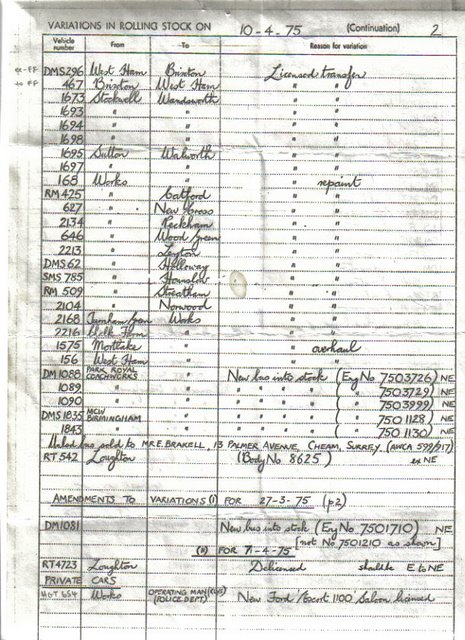 VARIATIONS IN ROLLING STOCK ON 10-4-75 (Continuation) 2
Vehicle number From To Reason for variation
ex-FF DMS296 West Ham Brixton Licensed transfer
to FF 467 Brixton West Ham " "
1673 Stockwell Wandsworth " "
1693 " " " "
1694 " " " "
1698 " " " "
1695 Sutton Walworth " "
1697 " " " "
168 Works " " repaint
RM 425 " Catford " "
627 " New Cross " "
2134 " Peckham " "
646 " Wood Green " "
2213 " Leyton " "
DMS 62 " Holloway " "
SMS 785 " Hounslow " "
RM 509 " Streatham " "
2104 " Norwood " "
2168 Works " "
2216 West Ham " " "
1575 Mortlake " " overhaul
156 West Ham " " "
DM 1088 PARK ROYAL COACHWORKS New bus into stock (Eng No 7503726) NE
1089 " " " " " ( " " 7503729) NE
1090 " " " " " ( " " 7503999) NE
DMS 1835 MCW BIRMINGHAM " " " " ( " " 750 1128) NE
1843 " " " " " ( " " 750 1130) NE
bus sold to MR E. BRAKELL, 13 PALMER AVENUE, CHEAM, SURREY. (AWCA 599/917)
RT 542 Loughton (Body No 8625) ex NE
AMENDMENTS TO VARIATIONS (i) FOR 27-3-75 (p2)
DM1081 New bus into stock (Eng No 7501710) NE
[not No 7501210 as shown]
(ii) FOR 7-4-75
RT4723 Loughton Delicensed should be E to NE
PRIVATE CARS
Works OPERATING MAN (POLICE DEPT) New Ford Escort 1100 Saloon licensed